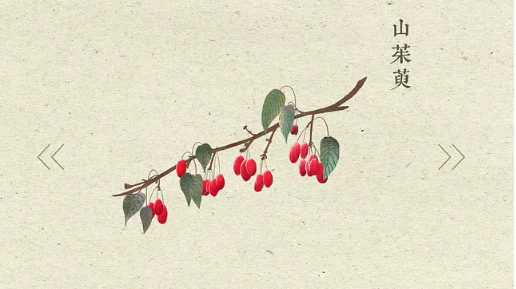 山茱萸